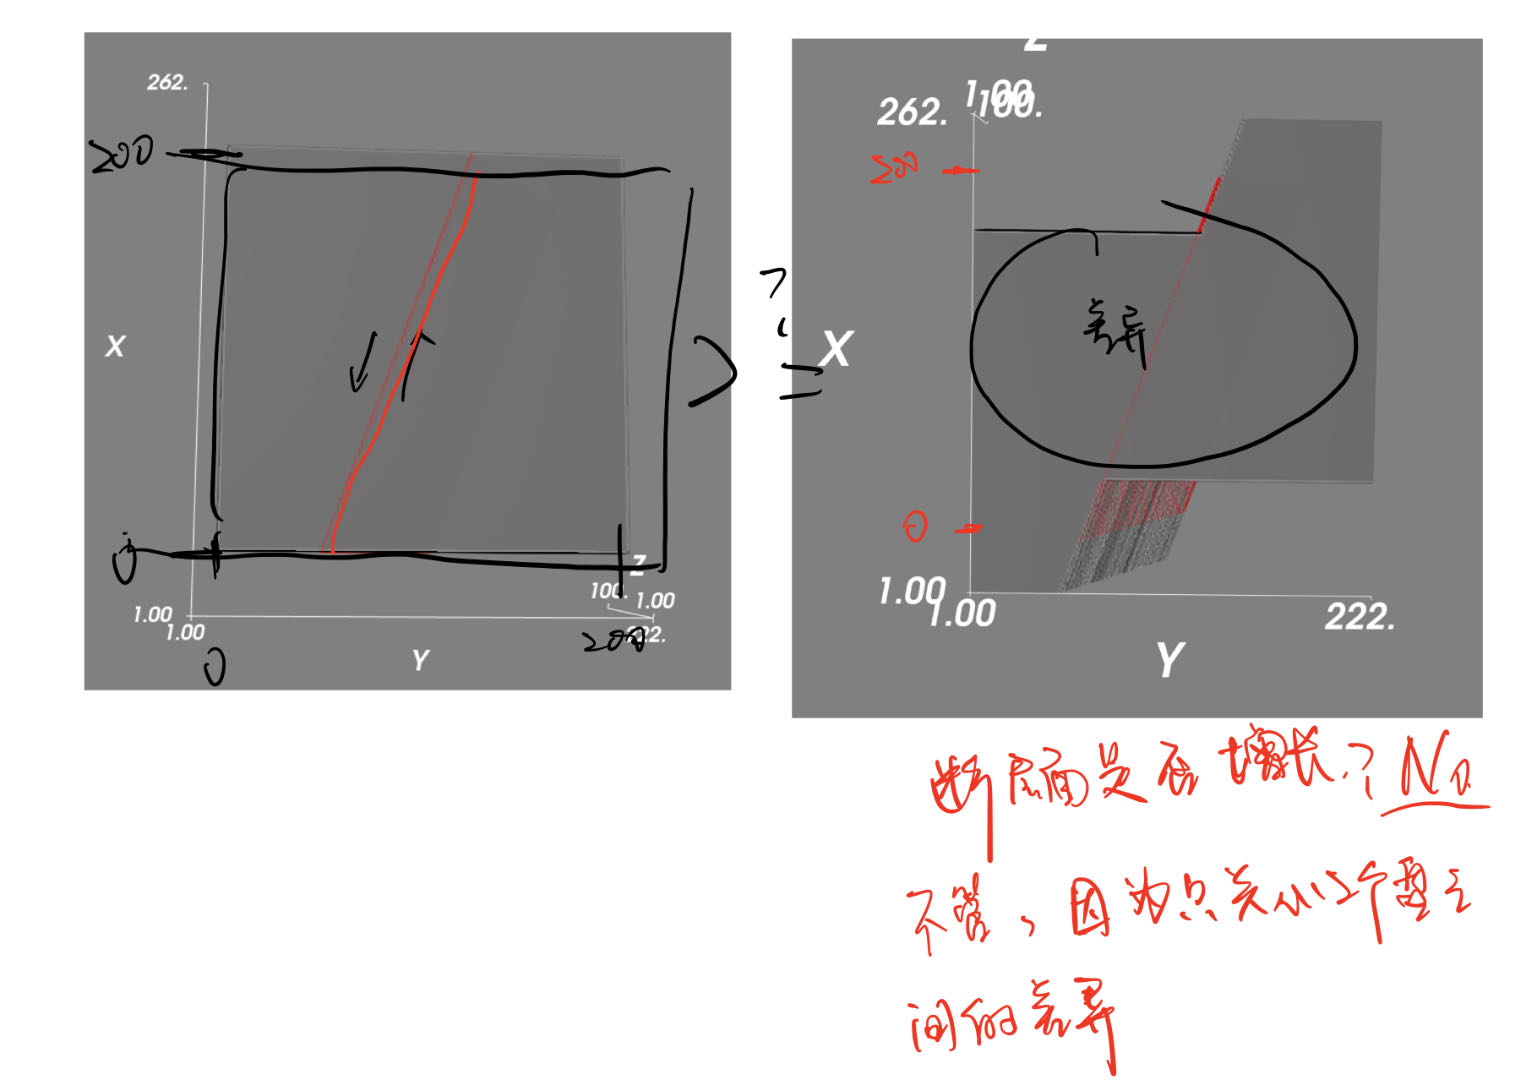 262.
200
X
0
1.00
1.00
Z
100.
1.00
200
222.
0
Y
?
Z
1.00
100.
262.
200
X
差异
0
1.00
1.00
222.
Y
断层面是否增长？No
不管，因为只关心2个雷之
间的差异